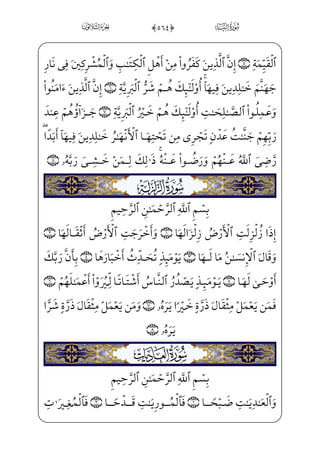 سُورَةُ البَيِّنَةِ ﴿٥٦٤﴾ الجُزْءُ الثَّلَاثُونَ
ٱلْقَيِّمَةِ ۝ إِنَّ ٱلَّذِينَ كَفَرُوا۟ مِنْ أَهْلِ ٱلْكِتَٰبِ وَٱلْمُشْرِكِينَ فِى نَارِ
جَهَنَّمَ خَٰلِدِينَ فِيهَآ ۚ أُو۟لَٰٓئِكَ هُمْ شَرُّ ٱلْبَرِيَّةِ ۝ إِنَّ ٱلَّذِينَ ءَامَنُوا۟
وَعَمِلُوا۟ ٱلصَّٰلِحَٰتِ أُو۟لَٰٓئِكَ هُمْ خَيْرُ ٱلْبَرِيَّةِ ۝ جَزَآؤُهُمْ عِندَ
رَبِّهِمْ جَنَّٰتُ عَدْنٍ تَجْرِى مِن تَحْتِهَا ٱلْأَنْهَٰرُ خَٰلِدِينَ فِيهَآ أَبَدًا ۖ
رَّضِىَ ٱللَّهُ عَنْهُمْ وَرَضُوا۟ عَنْهُ ۚ ذَٰلِكَ لِمَنْ خَشِىَ رَبَّهُۥ ۝
سُورَةُ الزَّلْزَلَةِ
بِسْمِ ٱللَّهِ ٱلرَّحْمَٰنِ ٱلرَّحِيمِ
إِذَا زُلْزِلَتِ ٱلْأَرْضُ زِلْزَالَهَا ۝ وَأَخْرَجَتِ ٱلْأَرْضُ أَثْقَالَهَا ۝
وَقَالَ ٱلْإِنسَٰنُ مَا لَهَا ۝ يَوْمَئِذٍ تُحَدِّثُ أَخْبَارَهَا ۝ بِأَنَّ رَبَّكَ
أَوْحَىٰ لَهَا ۝ يَوْمَئِذٍ يَصْدُرُ ٱلنَّاسُ أَشْتَاتًا لِّيُرَوْا۟ أَعْمَٰلَهُمْ ۝
فَمَن يَعْمَلْ مِثْقَالَ ذَرَّةٍ خَيْرًا يَرَهُۥ ۝ وَمَن يَعْمَلْ مِثْقَالَ ذَرَّةٍ شَرًّا
يَرَهُۥ ۝
سُورَةُ العَادِيَاتِ
بِسْمِ ٱللَّهِ ٱلرَّحْمَٰنِ ٱلرَّحِيمِ
وَٱلْعَٰدِيَٰتِ ضَبْحًا ۝ فَٱلْمُورِيَٰتِ قَدْحًا ۝ فَٱلْمُغِيرَٰتِ